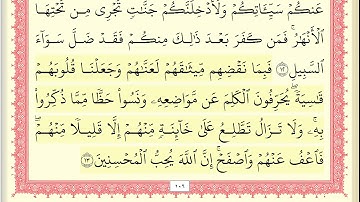 عَنكُمۡ سَيِّـَٔاتِكُمۡ وَلَأُدۡخِلَنَّكُمۡ جَنَّٰتٖ تَجۡرِي مِن تَحۡتِهَا
ٱلۡأَنۡهَٰرُۚ فَمَن كَفَرَ بَعۡدَ ذَٰلِكَ مِنكُمۡ فَقَدۡ ضَلَّ سَوَآءَ
ٱلسَّبِيلِ ١٢ فَبِمَا نَقۡضِهِم مِّيثَٰقَهُمۡ لَعَنَّٰهُمۡ وَجَعَلۡنَا قُلُوبَهُمۡ
قَٰسِيَةٗۖ يُحَرِّفُونَ ٱلۡكَلِمَ عَن مَّوَاضِعِهِۦ وَنَسُواْ حَظّٗا مِّمَّا ذُكِّرُواْ
بِهِۦۚ وَلَا تَزَالُ تَطَّلِعُ عَلَىٰ خَآئِنَةٖ مِّنۡهُمۡ إِلَّا قَلِيلٗا مِّنۡهُمۡۖ
فَٱعۡفُ عَنۡهُمۡ وَٱصۡفَحۡۚ إِنَّ ٱللَّهَ يُحِبُّ ٱلۡمُحۡسِنِينَ ١٣
١٠٩